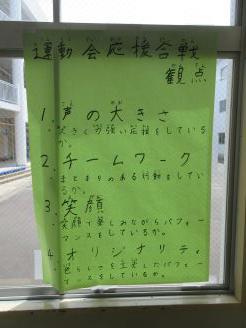 運動会応援合戦
観点
1. 声の大きさ
大きく力強い応援をしている
か。
2. チームワーク
まとまりのある行動をしてい
るか。
3. 笑顔
笑顔で楽しみながらパフォー
マンスをしているか。
4. オリジナリティ
色らしさを生かしたパフォー
マンスをしているか。